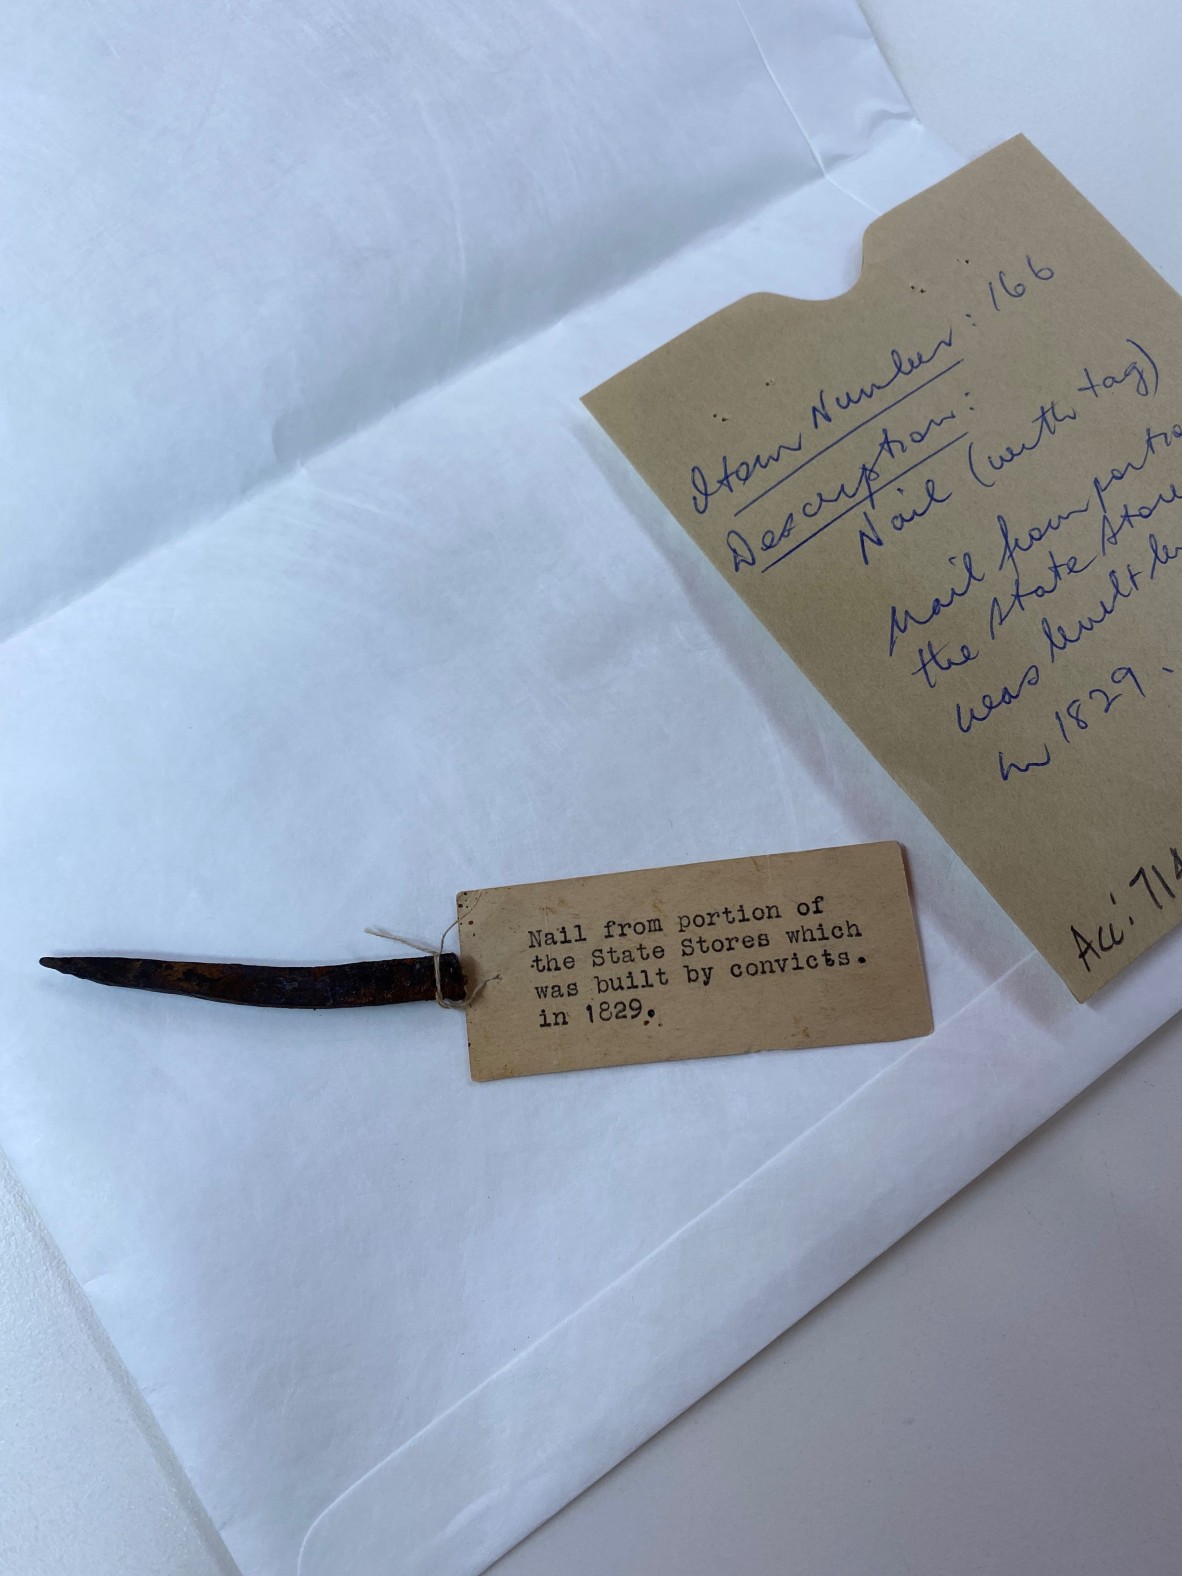 Item Number: 166
Description:
Nail (with tag)
Nail from portio
the State Store
was built
in 1829.
Acc: 714
Nail from portion of
the State Stores which
was built by convicts.
in 1829.